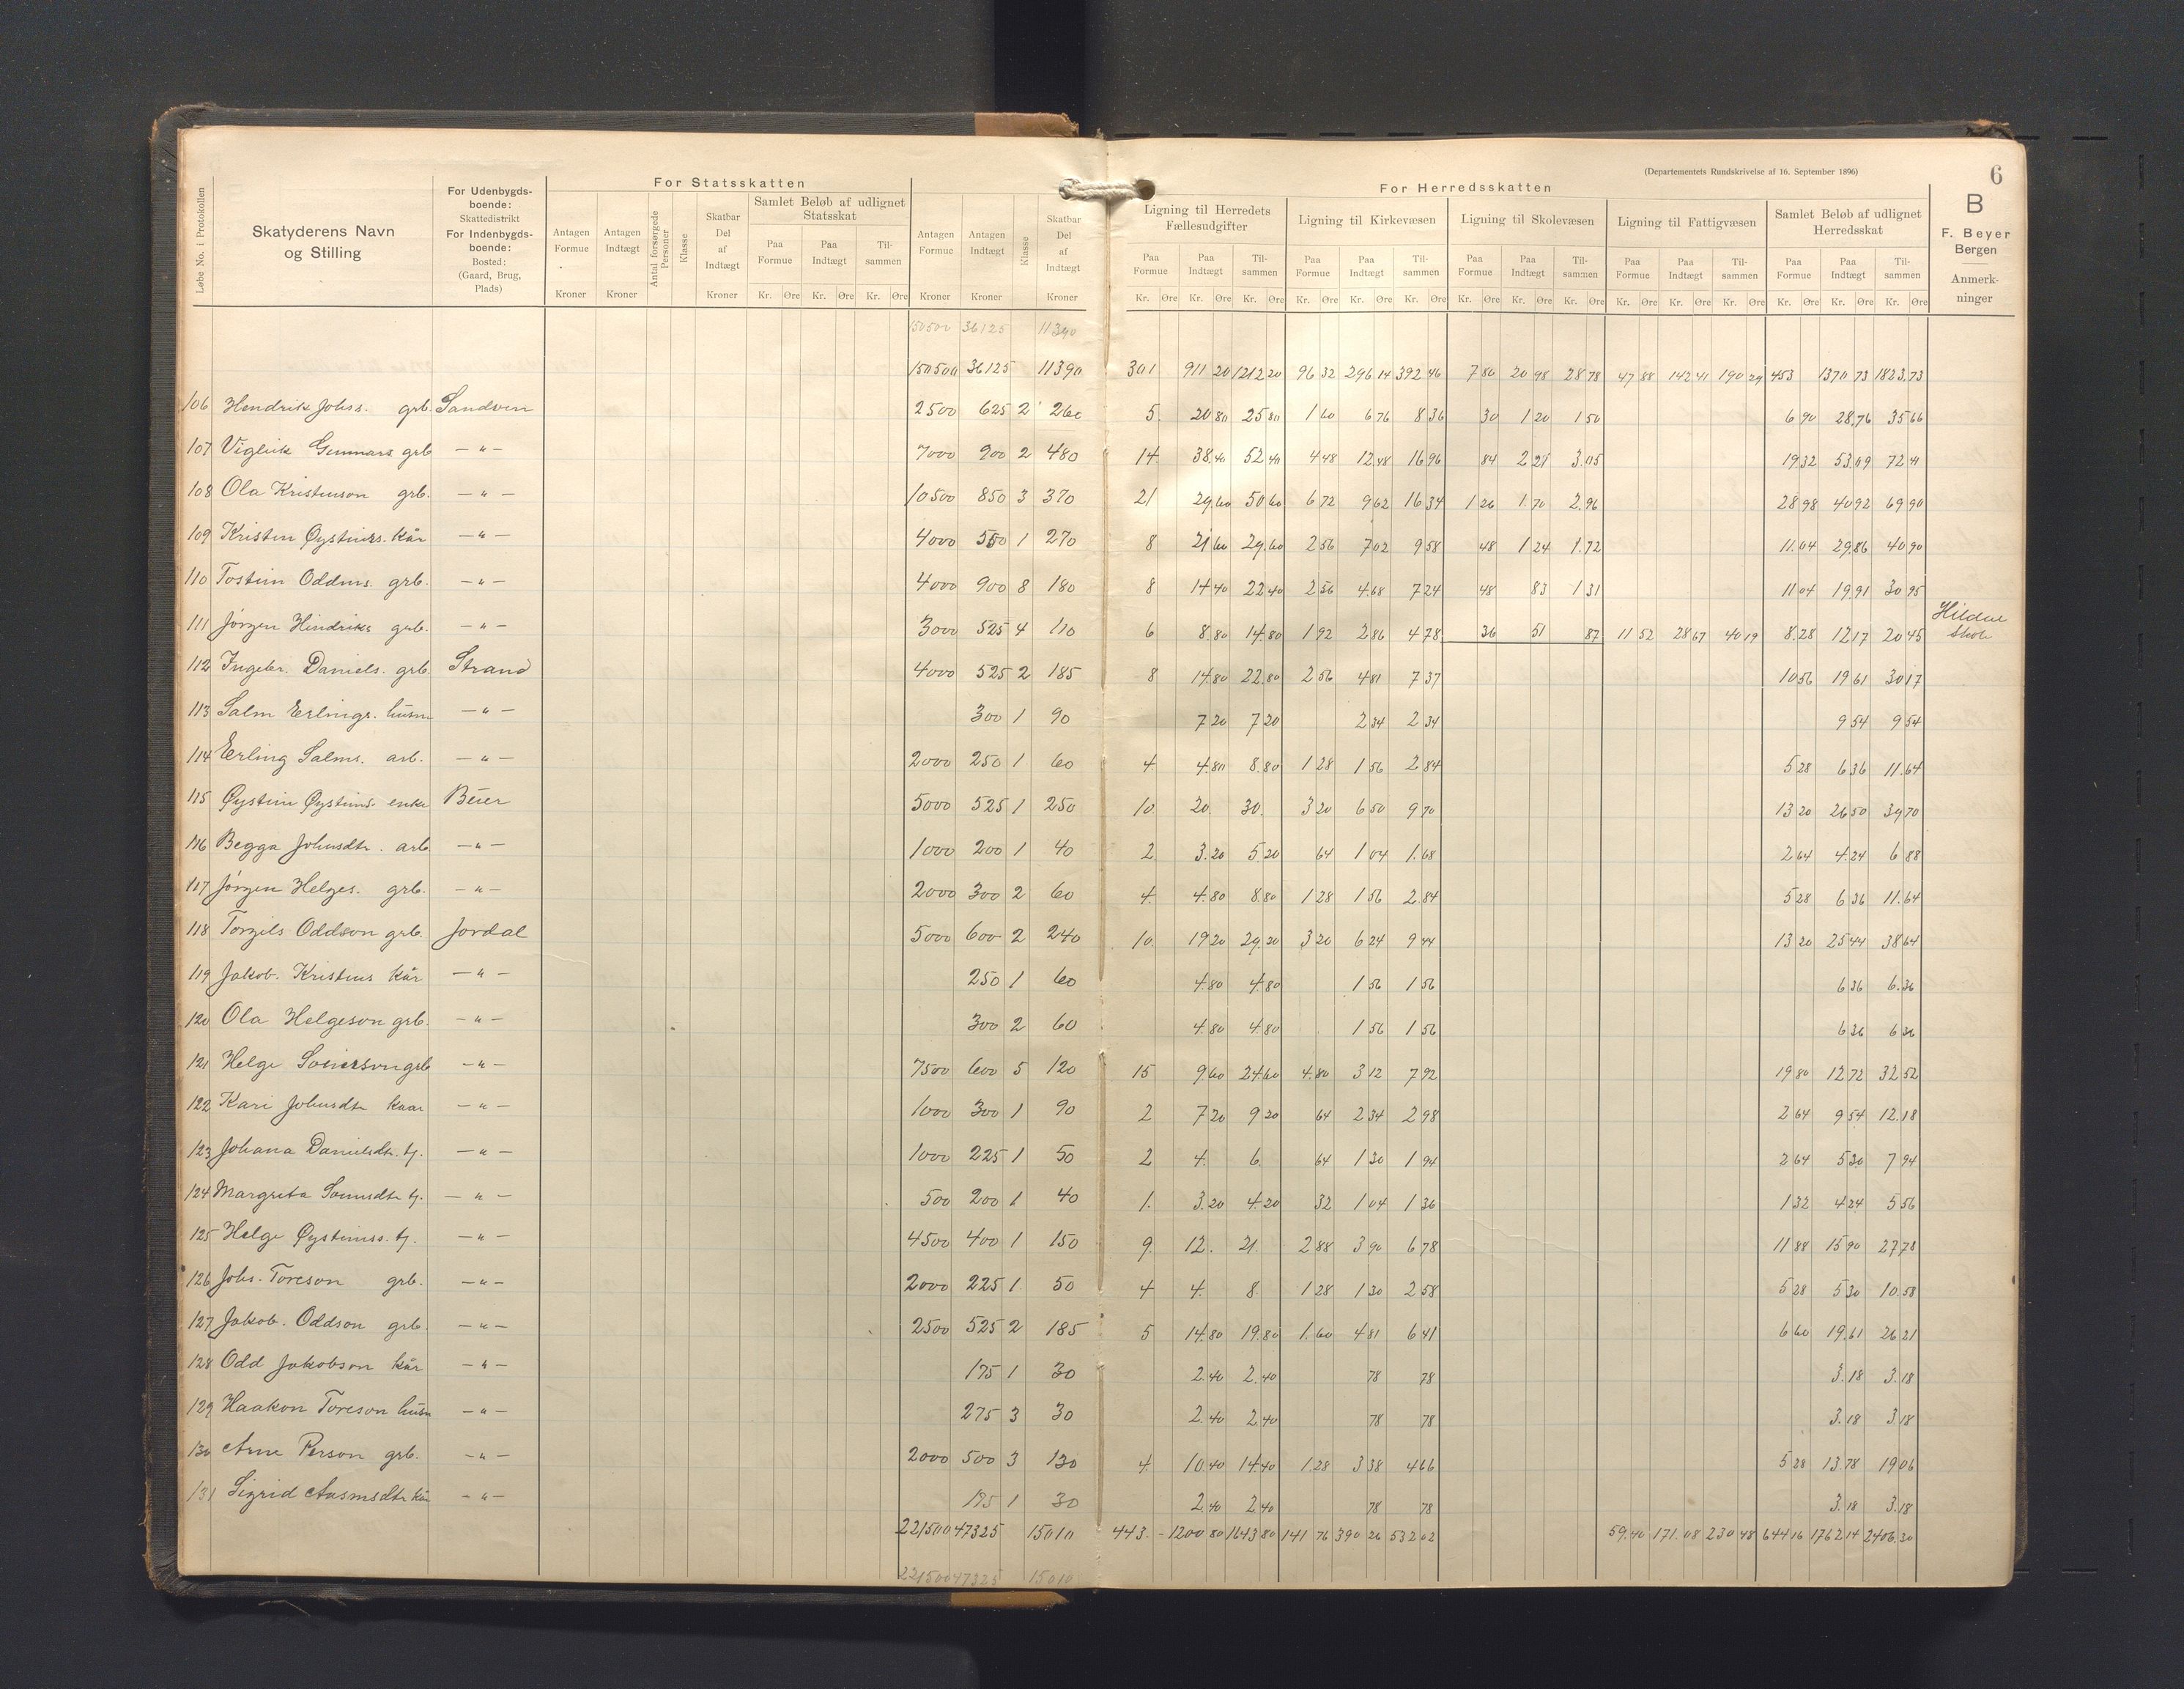 6
(Departementets Rundskrivelse af 16. September 1896)
For Statsskatten
For Herredsskatten
B
F. Beyer
Bergen
Anmerk-
ninger
Løbe No. i Protokollen
Skatyderens Navn
og Stilling
For Udenbygds-
boende:
Skattedistrikt
For Indenbygds-
boende:
Bosted:
(Gaard, Brug,
Plads)
Antagen Formue Kroner
Antagen Indtægt Kroner
Antal forsørgede Personer
Klasse
Skatbar Del af Indtægt Kroner
Samlet Beløb af udlignet Statsskat
Paa Formue Paa Indtægt Til-sammen
Kr. Øre Kr. Øre Kr. Øre
Antagen Formue Kroner
Antagen Indtægt Kroner
Klasse
Skatbar Del af Indtægt Kroner
Ligning til Herredets Fællesudgifter
Paa Formue Paa Indtægt Til-sammen
Kr. Øre Kr. Øre Kr. Øre
Ligning til Kirkevæsen
Paa Formue Paa Indtægt Til-sammen
Kr. Øre Kr. Øre Kr. Øre
Ligning til Skolevæsen
Paa Formue Paa Indtægt Til-sammen
Kr. Øre Kr. Øre Kr. Øre
Ligning til Fattigvæsen
Paa Formue Paa Indtægt Til-sammen
Kr. Øre Kr. Øre Kr. Øre
Samlet Beløb af udlignet Herredsskat
Paa Formue Paa Indtægt Til-sammen
Kr. Øre Kr. Øre Kr. Øre
150500 36125 11390
150500 36125 11390 301 911 20 1212 20 96 32 296 14 392 46 7 80 20 98 28 78 47 88 142 41 190 29 453 1370 73 1823.73
106 Hendrik Johs. grb. Sandven 2500 625 2 260 5. 20 80 25 80 1 60 6 76 8 36 30 1 20 1 50 6 90 28,76 35 66
107 Viglik Gunnars grb — " — 7000 900 2 480 14. 38.40 52 40 4 48 12 48 16 96 84 2 21 3.05 19 32 53.09 72 41
108 Ola Kristenson grb. — " — 10500 850 3 370 21 29.60 50 60 6 72 9 62 16 34 1 26 1.70 2.96 28 98 40 92 69 90
109 Kristen Øysteins. kår — " — 4000 550 1 270 8 21 60 29.60 2 56 7 02 9 58 48 1.24 1.72 11.04 29.86 40 90
110 Tostein Oddms. grb. — " — 4000 900 8 180 8 14 40 22 40 2 56 4.68 7 24 48 83 1 31 11 04 19.91 30 95
111 Jørgen Hindriks grb. — " — 3000 525 4 110 6 8.80 14.80 1 92 2 86 4 78 36 51 87 11 52 28 67 40 19 8.28 12 17 20 45
112 Ingebr. Daniels. grb. Strand 4000 525 2 185 8 14.80 22.80 2 56 4 81 7 37 10 56 19 61 30 17
113 Salm Erlings. husm — " — 300 1 90 7 20 7 20 2 34 2 34 9 54 9 54
114 Erling Salms. arb. — " — 2000 250 1 60 4. 4.80 8.80 1 28 1 56 2 84 5 28 6 36 11.64
115 Øystein Øysteins. enke Beier 5000 525 1 250 10. 20. 30. 3 20 6 50 9 70 13 20 26 50 39 70
116 Begga Johnsdtr. arb — " — 1000 200 1 40 2 3.20 5 20 64 1 04 1.68 2 64 4.24 6 88
117 Jørgen Helges. grb. — " — 2000 300 2 60 4. 4.80 8.80 1 28 1 56 2.84 5 28 6 36 11.64
118 Torgils Oddson grb. Jordal 5000 600 2 240 10. 19 20 29.20 3 20 6 24 9 44 13 20 25 44 38 64
119 Jakob. Kristens kår — " — 250 1 60 4.80 4 80 1 56 1 56 6 36 6.36
120 Ola Helgeson grb. — " — 300 2 60 4.80 4.80 1 56 1 56 6 36 6 36
121 Helge grb — " — 7500 600 5 120 15 9 60 24 60 4.80 3 12 7 92 19 80 12 72 32 52
122 Kari Johnsdtr kaar — " — 1000 300 1 90 2 7 20 9 20 64 2 34 2 98 2 64 9 54 12.18
123 Johana Danielsdtr. tj. — " — 1000 225 1 50 2 4. 6 64 1 30 1 94 2 64 5 30 7 94
124 Margreta tj. — " — 500 200 1 40 1. 3.20 4.20 32 1 04 1 36 1 32 4 24 5 56
125 Helge Øysteinss. tj. — " — 4500 400 1 150 9. 12. 21. 2 88 3 90 6 78 11 88 15 90 27 78
126 Johs. Toreson grb. — " — 2000 225 1 50 4 4. 8. 1 28 1 30 2 58 5 28 5 30 10.58
127 Jakob. Oddson grb. — " — 2500 525 2 185 5 14.80 19.80 1.60 4 81 6 41 6 60 19.61 26 21
128 Odd Jakobson kår — " — 175 1 30 2.40 2.40 78 78 3.18 3.18
129 Haakon Toreson husm — " — 275 3 30 2.40 2.40 78 78 3.18 3 18
130 Arne Person grb. — " — 2000 500 3 130 4. 10.40 14.40 1.28 3 38 4 66 5 28 13.78 19 06
131 Sigrid Aasmsdtr kår — " — 175 1 30 2.40 2.40 78 78 3.18 3.18
Hildal
skole
221500 47325 15010 443. – 1200 80 1643 80 141 76 390 26 532 02 59.40 171.08 230 48 644 16 1762 14 2406.30
221500 47325 15010